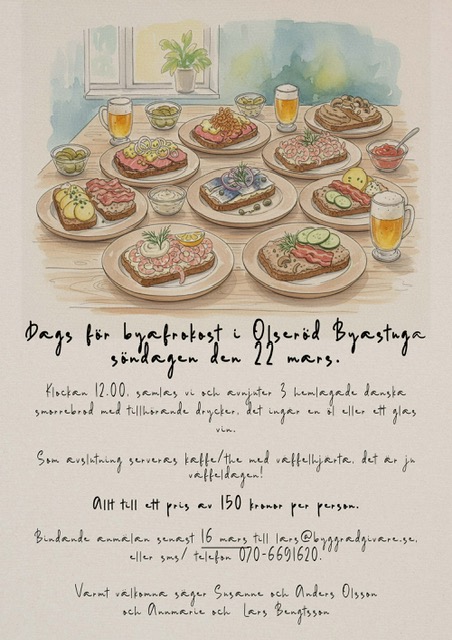 Dags för byafrokost i Olseröd Byastuga
söndagen den 22 mars.
Klockan 12.00, samlas vi och avnjuter 3 hemlagade danska
smörrebröd med tillhörande drycker, det ingår en öl eller ett glas
vin.
Som avslutning serveras kaffe/the med våffelhjärta, det är ju
våffeldagen!
Allt till ett pris av 150 kronor per person.
Bindande anmälan senast 16 mars till lars@byggradgivare.se,
eller sms/ telefon 070-6691620.
Varmt välkomna säger Susanne och Anders Olsson
och Annmarie och Lars Bengtsson